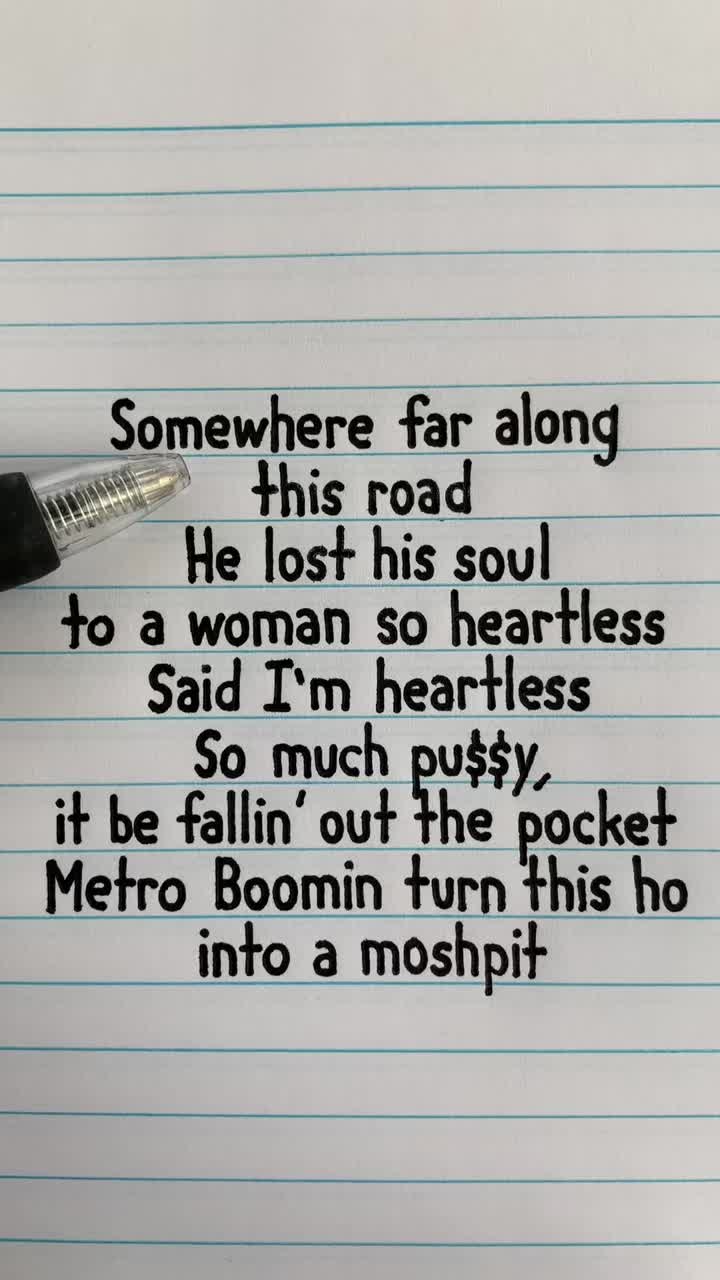 Somewhere far along
this road
He lost his soul
to a woman so heartless
Said I'm heartless
So much pu$$y,
it be fallin' out the pocket
Metro Boomin turn this ho
into a moshpit